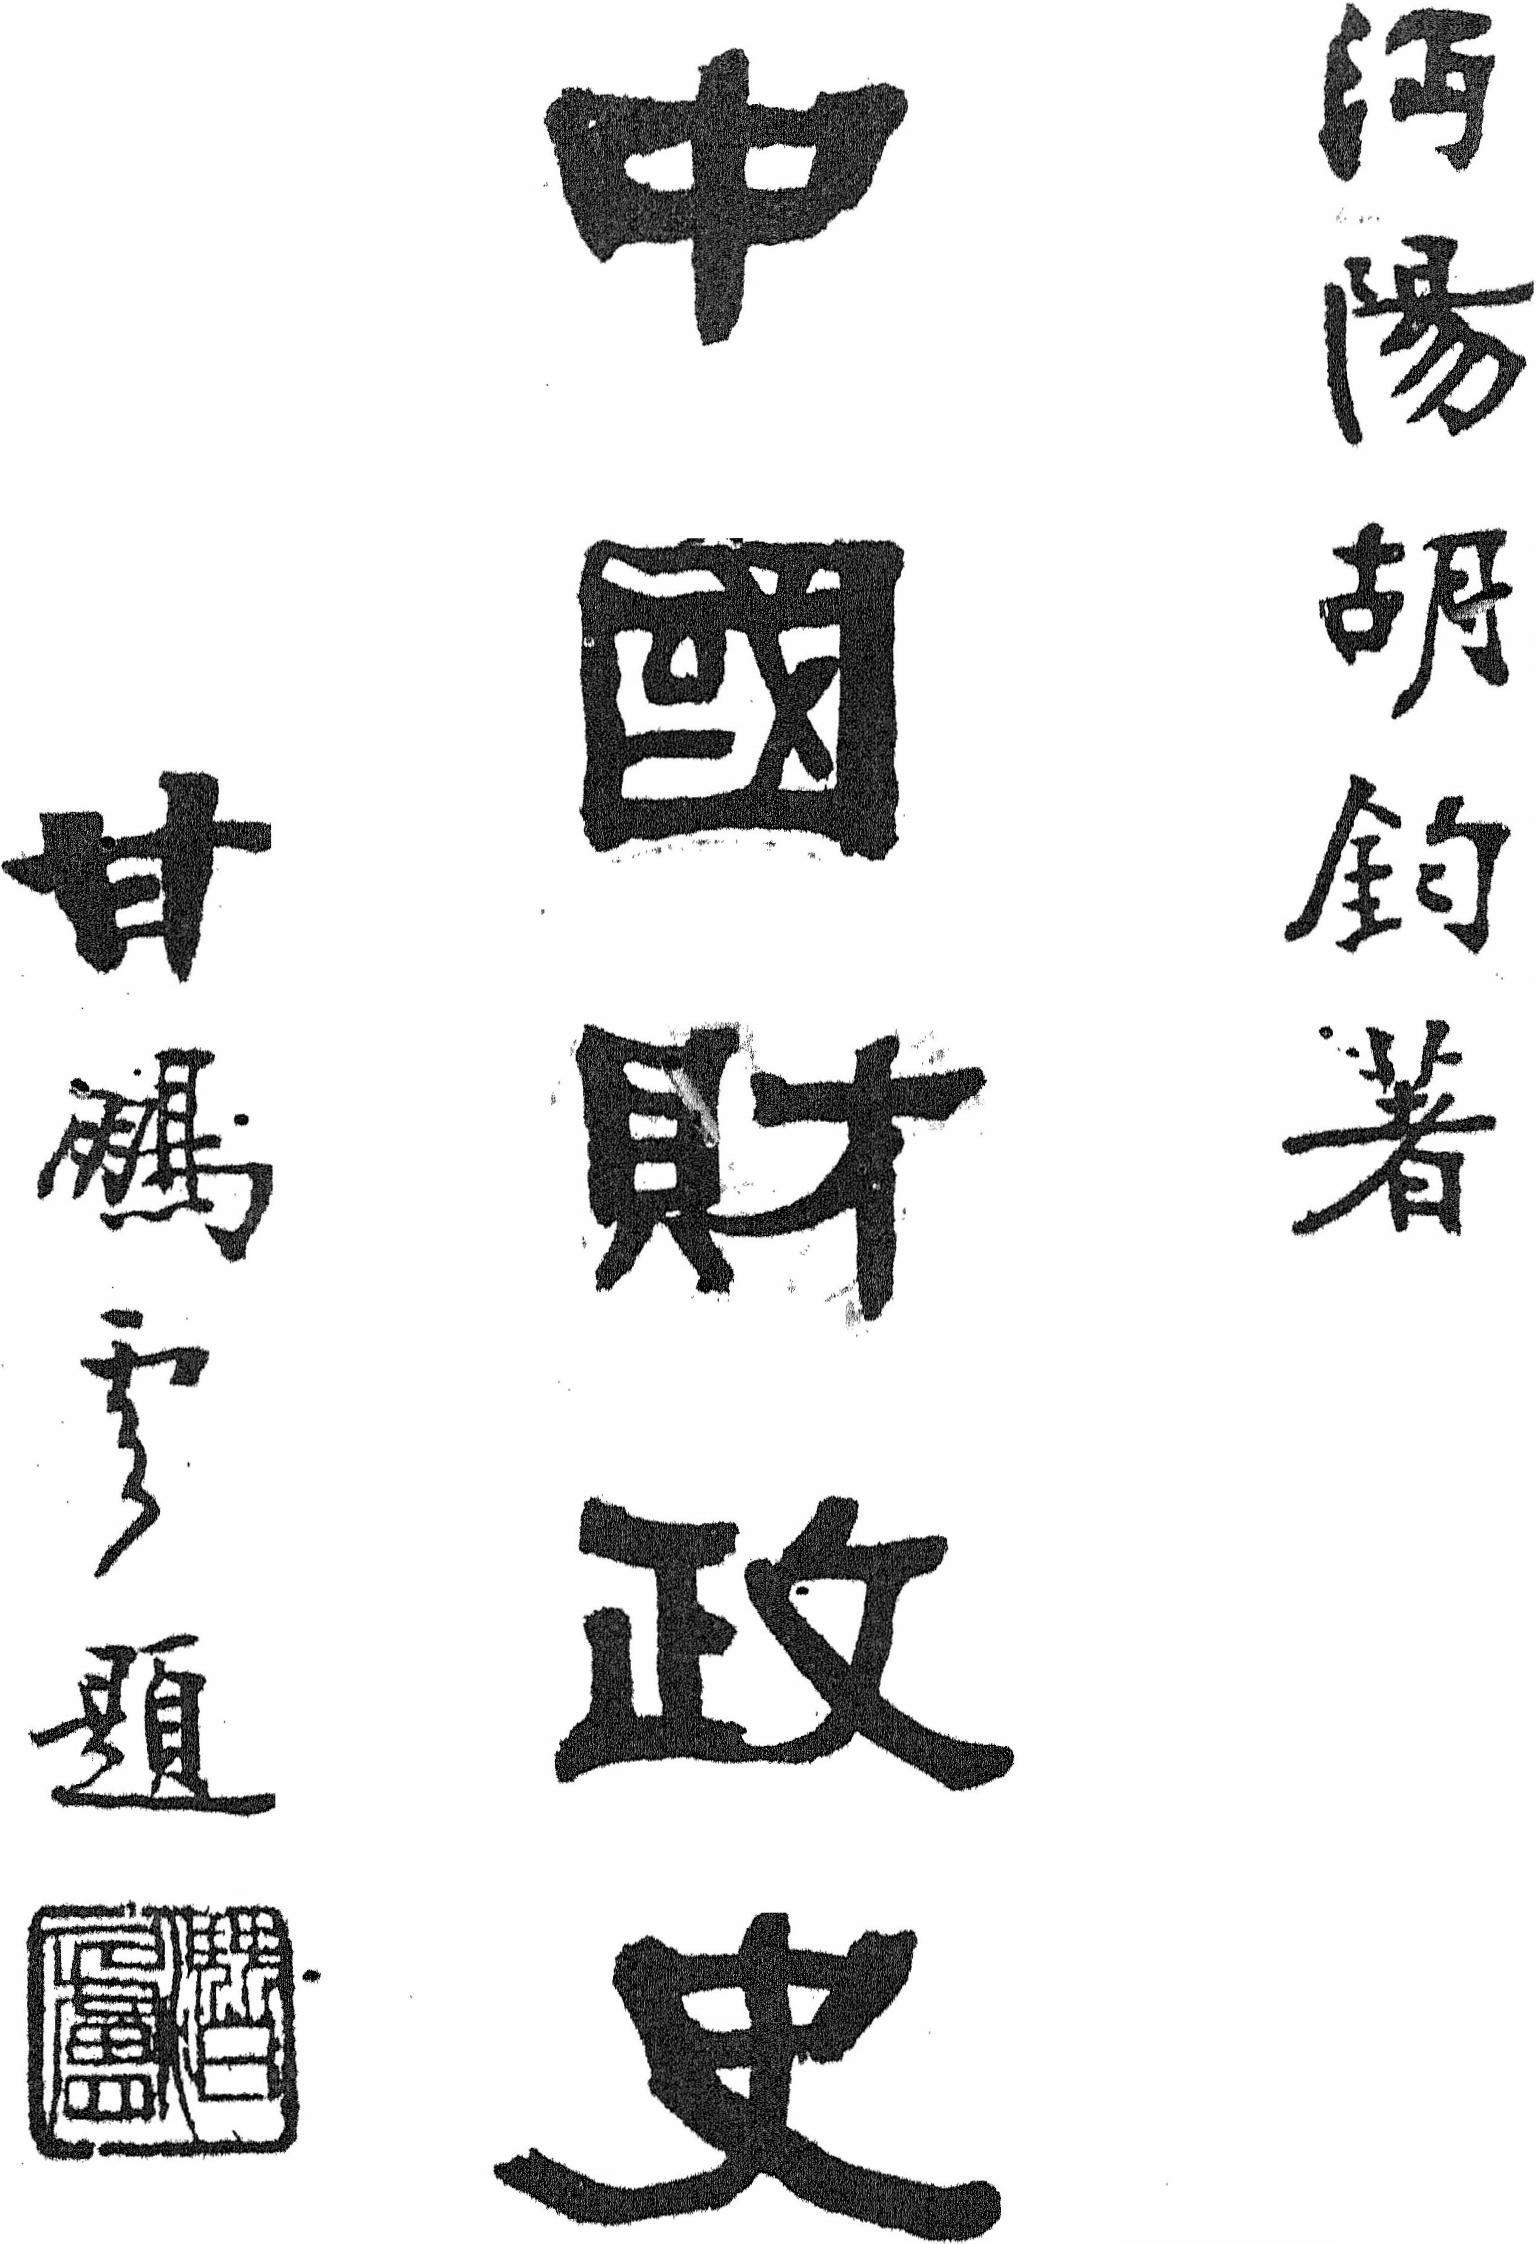 沔陽胡鈞著
中國財政史
甘鵬雲題
潛廬